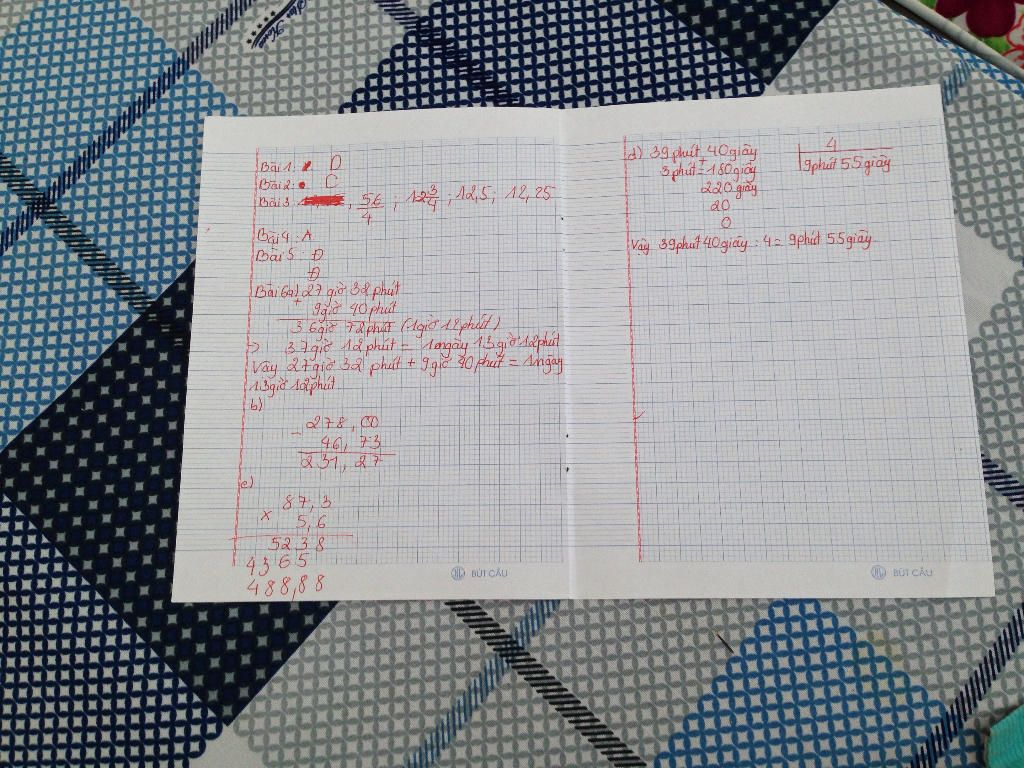 Bài 1. D
Bài 2. C
Bài 3 , 56/4 ; 12 3/4 ; 12,5 ; 12,25
Bài 4 : A
Bài 5 : Đ
Đ
Bài 6a) 27 giờ 32 phút
+
9 giờ 40 phút
36 giờ 72 phút (1 giờ 12 phút)
=> 37 giờ 12 phút = 1 ngày 13 giờ 12 phút
Vậy 27 giờ 32 phút + 9 giờ 40 phút = 1 ngày
13 giờ 12 phút
b)
278,00
-
46,73
231,27
c)
87,3
x
5,6
5238
4365
488,88
BÚT CÂU
d) 39 phút 40 giây 4
3 phút = 180 giây 9 phút 55 giây
+
220 giây
20
0
Vậy 39 phút 40 giây : 4 = 9 phút 55 giây
BÚT CÂU